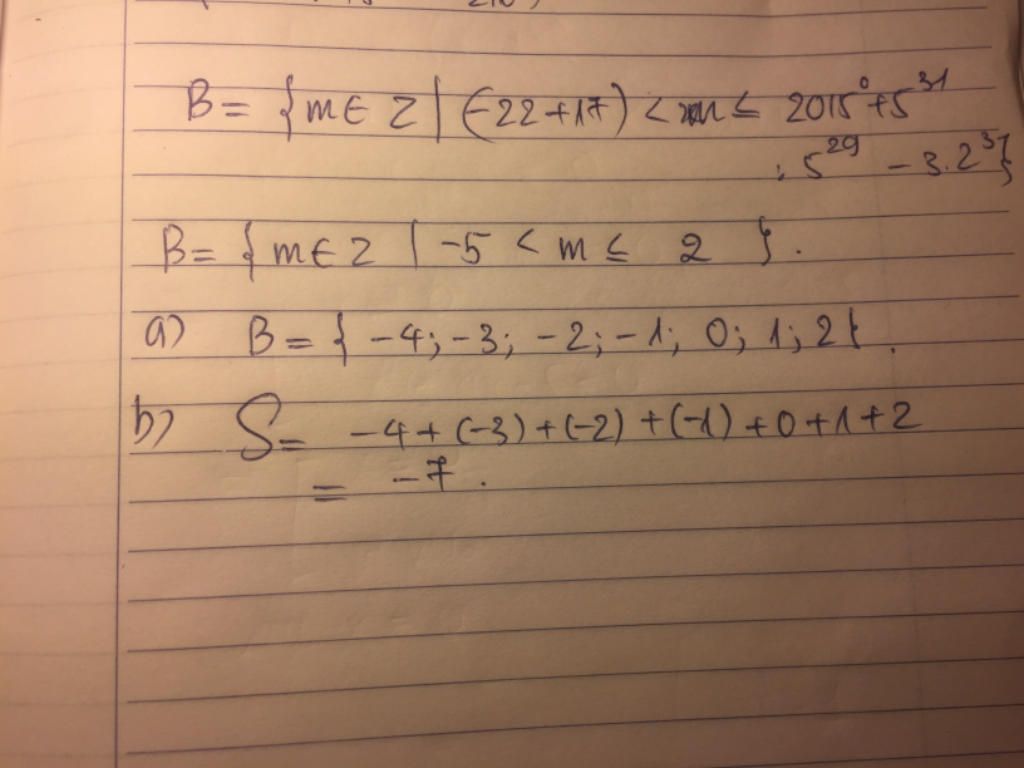 B = {m ∈ Z | (-22+17) < m ≤ 2015⁰ + 5³¹
: 5²⁹ - 3.2³}
B = {m ∈ Z | -5 < m ≤ 2 }.
a) B = { -4; -3; -2; -1; 0; 1; 2}.
b) S = -4 + (-3) + (-2) + (-1) + 0 + 1 + 2
= -7.